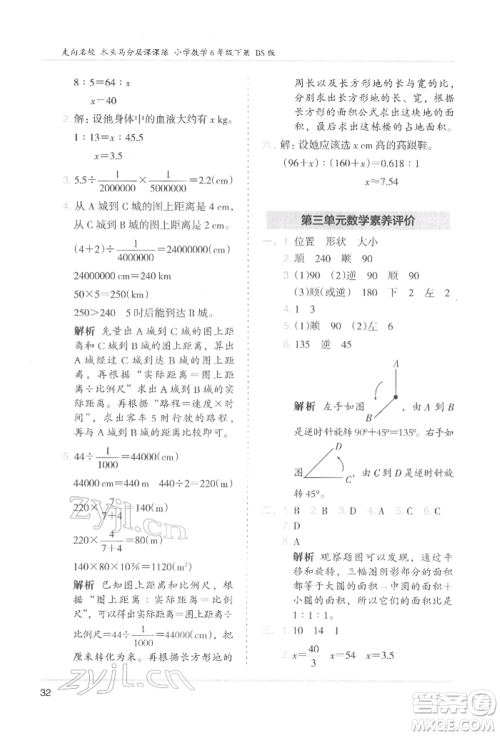 走向名校 木头马分层课课练 小学数学6年级下册 BS版
8∶5=64∶x
x=40
2. 解:设他身体中的血液大约有 x kg。
1∶13=x∶45.5
x=3.5
3. 5.5÷1/2000000×1/5000000=2.2(cm)
4. 从 A 城到 C 城的图上距离是 4 cm,
从 C 城到 B 城的图上距离是 2 cm。
(4+2)÷1/4000000=24000000(cm)
24000000 cm=240 km
50×5=250(km)
250>240 5时后能到达 B 城。
解析 先量出 A 城到 C 城的图上距
离和 C 城到 B 城的图上距离,求出
图上距离和,再根据“实际距离=图
上距离÷比例尺”求出实际距离和,
再根据“路程=速度×时间”求出
这辆客车 5 时行驶的路程,与实际
距离和作比较即可。
5. 44÷1/1000=44000(cm)
44000 cm=440 m
440÷2=220(m)
220×7/(7+4)=140(m)
220×4/(7+4)=80(m)
140×80×10%=1120(m²)
解析 已知图上距离和比例尺,则
实际距离=44÷1/1000=44000(cm),把
厘米转换为米。再根据长方形地的
周长以及长方形地的长、宽之
比,求出长方形地的长和宽,最后
根据长方形的面积公式求出这块地的
面积,并求出这栋楼的占地面积。
六、解:设她应该选 x cm 高的高跟鞋。
(96+x)∶(160+x)=0.618∶1
x≈7.54
第三单元数学素养评价
一、1. 位置 形状 大小
2. 顺 240 顺 90
3. (1)90 (2)逆 90 顺 90
(3)顺(或逆) 180 下 2 右 2
4. 1 3
5. (1)顺 90 (2)左 6
6. 135 逆 45
解析 左手如图
A
B
,由 A 到 B
是逆时针旋转 90°+45°=135°。右手如
图
D
C
,由 C 到 D 是逆时针旋
转 45°。
二、1. B 2. D 3. A 4. B 5. A
6. A
解析 观察题图可以发现,阴影
部分等于大圆的面积-中圆的面积
+小圆的面积,所以它们的面积比是
1∶1∶1。
三、1. 10 14 1
2. x=40/3 x=54 x=3.5
32
zyjl.cn
zyjl.cn
答案圈
MXQE.COM